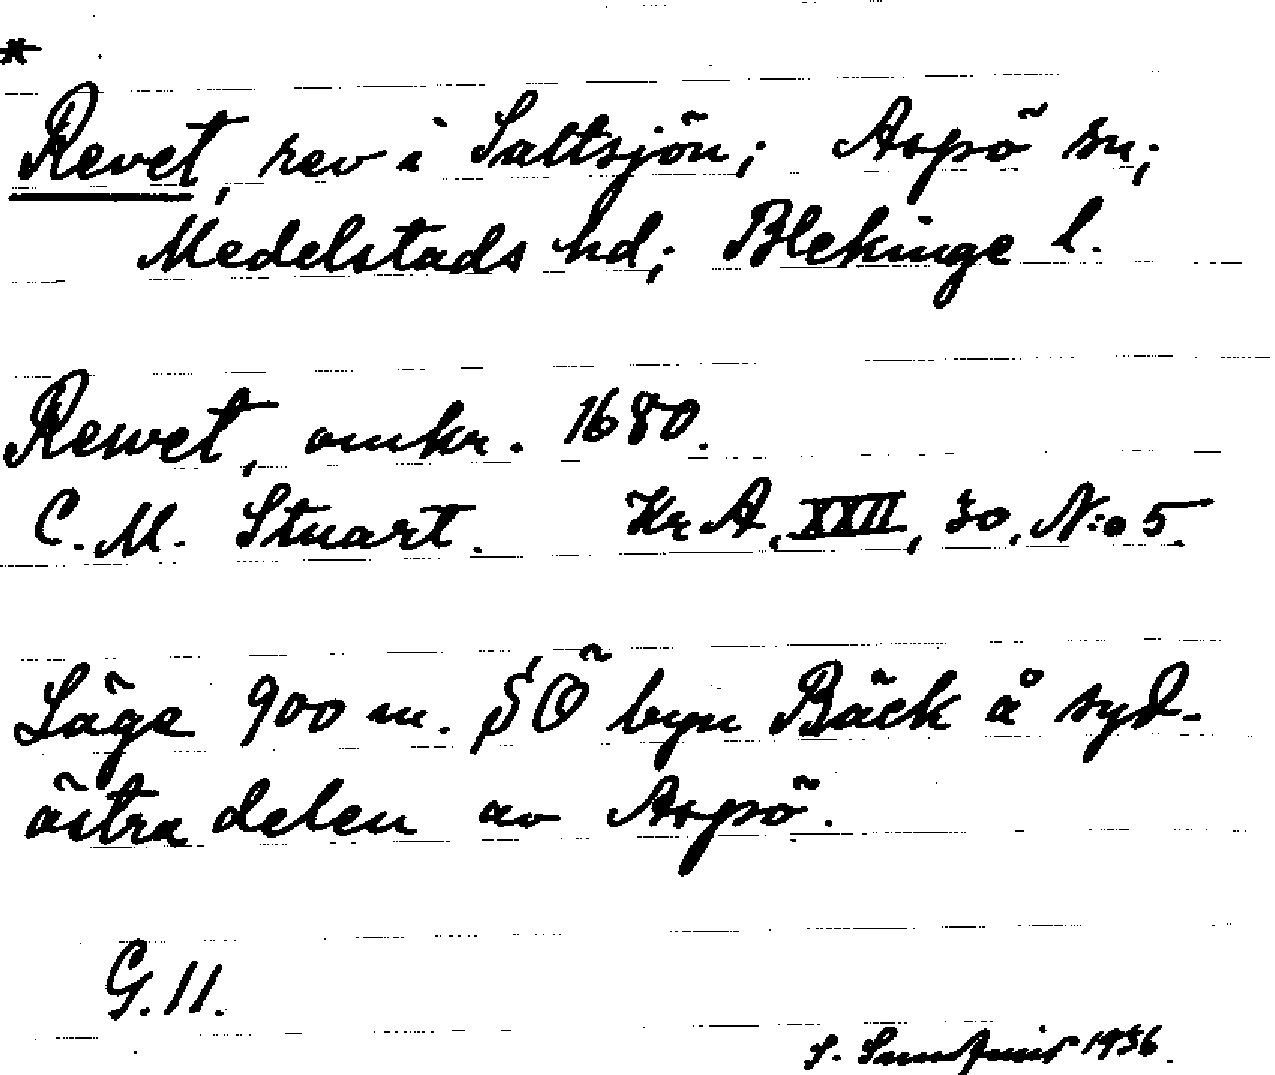 *
Revet, rev i Saltsjön; Aspö sn;
Medelstads hd; Blekinge l.
Rewet, omkr. 1680.
C. M. Stuart. Kr A, XXII, 30, N:o 5.
Läge 900 m. SÖ byn Bäck å syd-
östra delen av Aspö.
G. 11.
S. 1936.